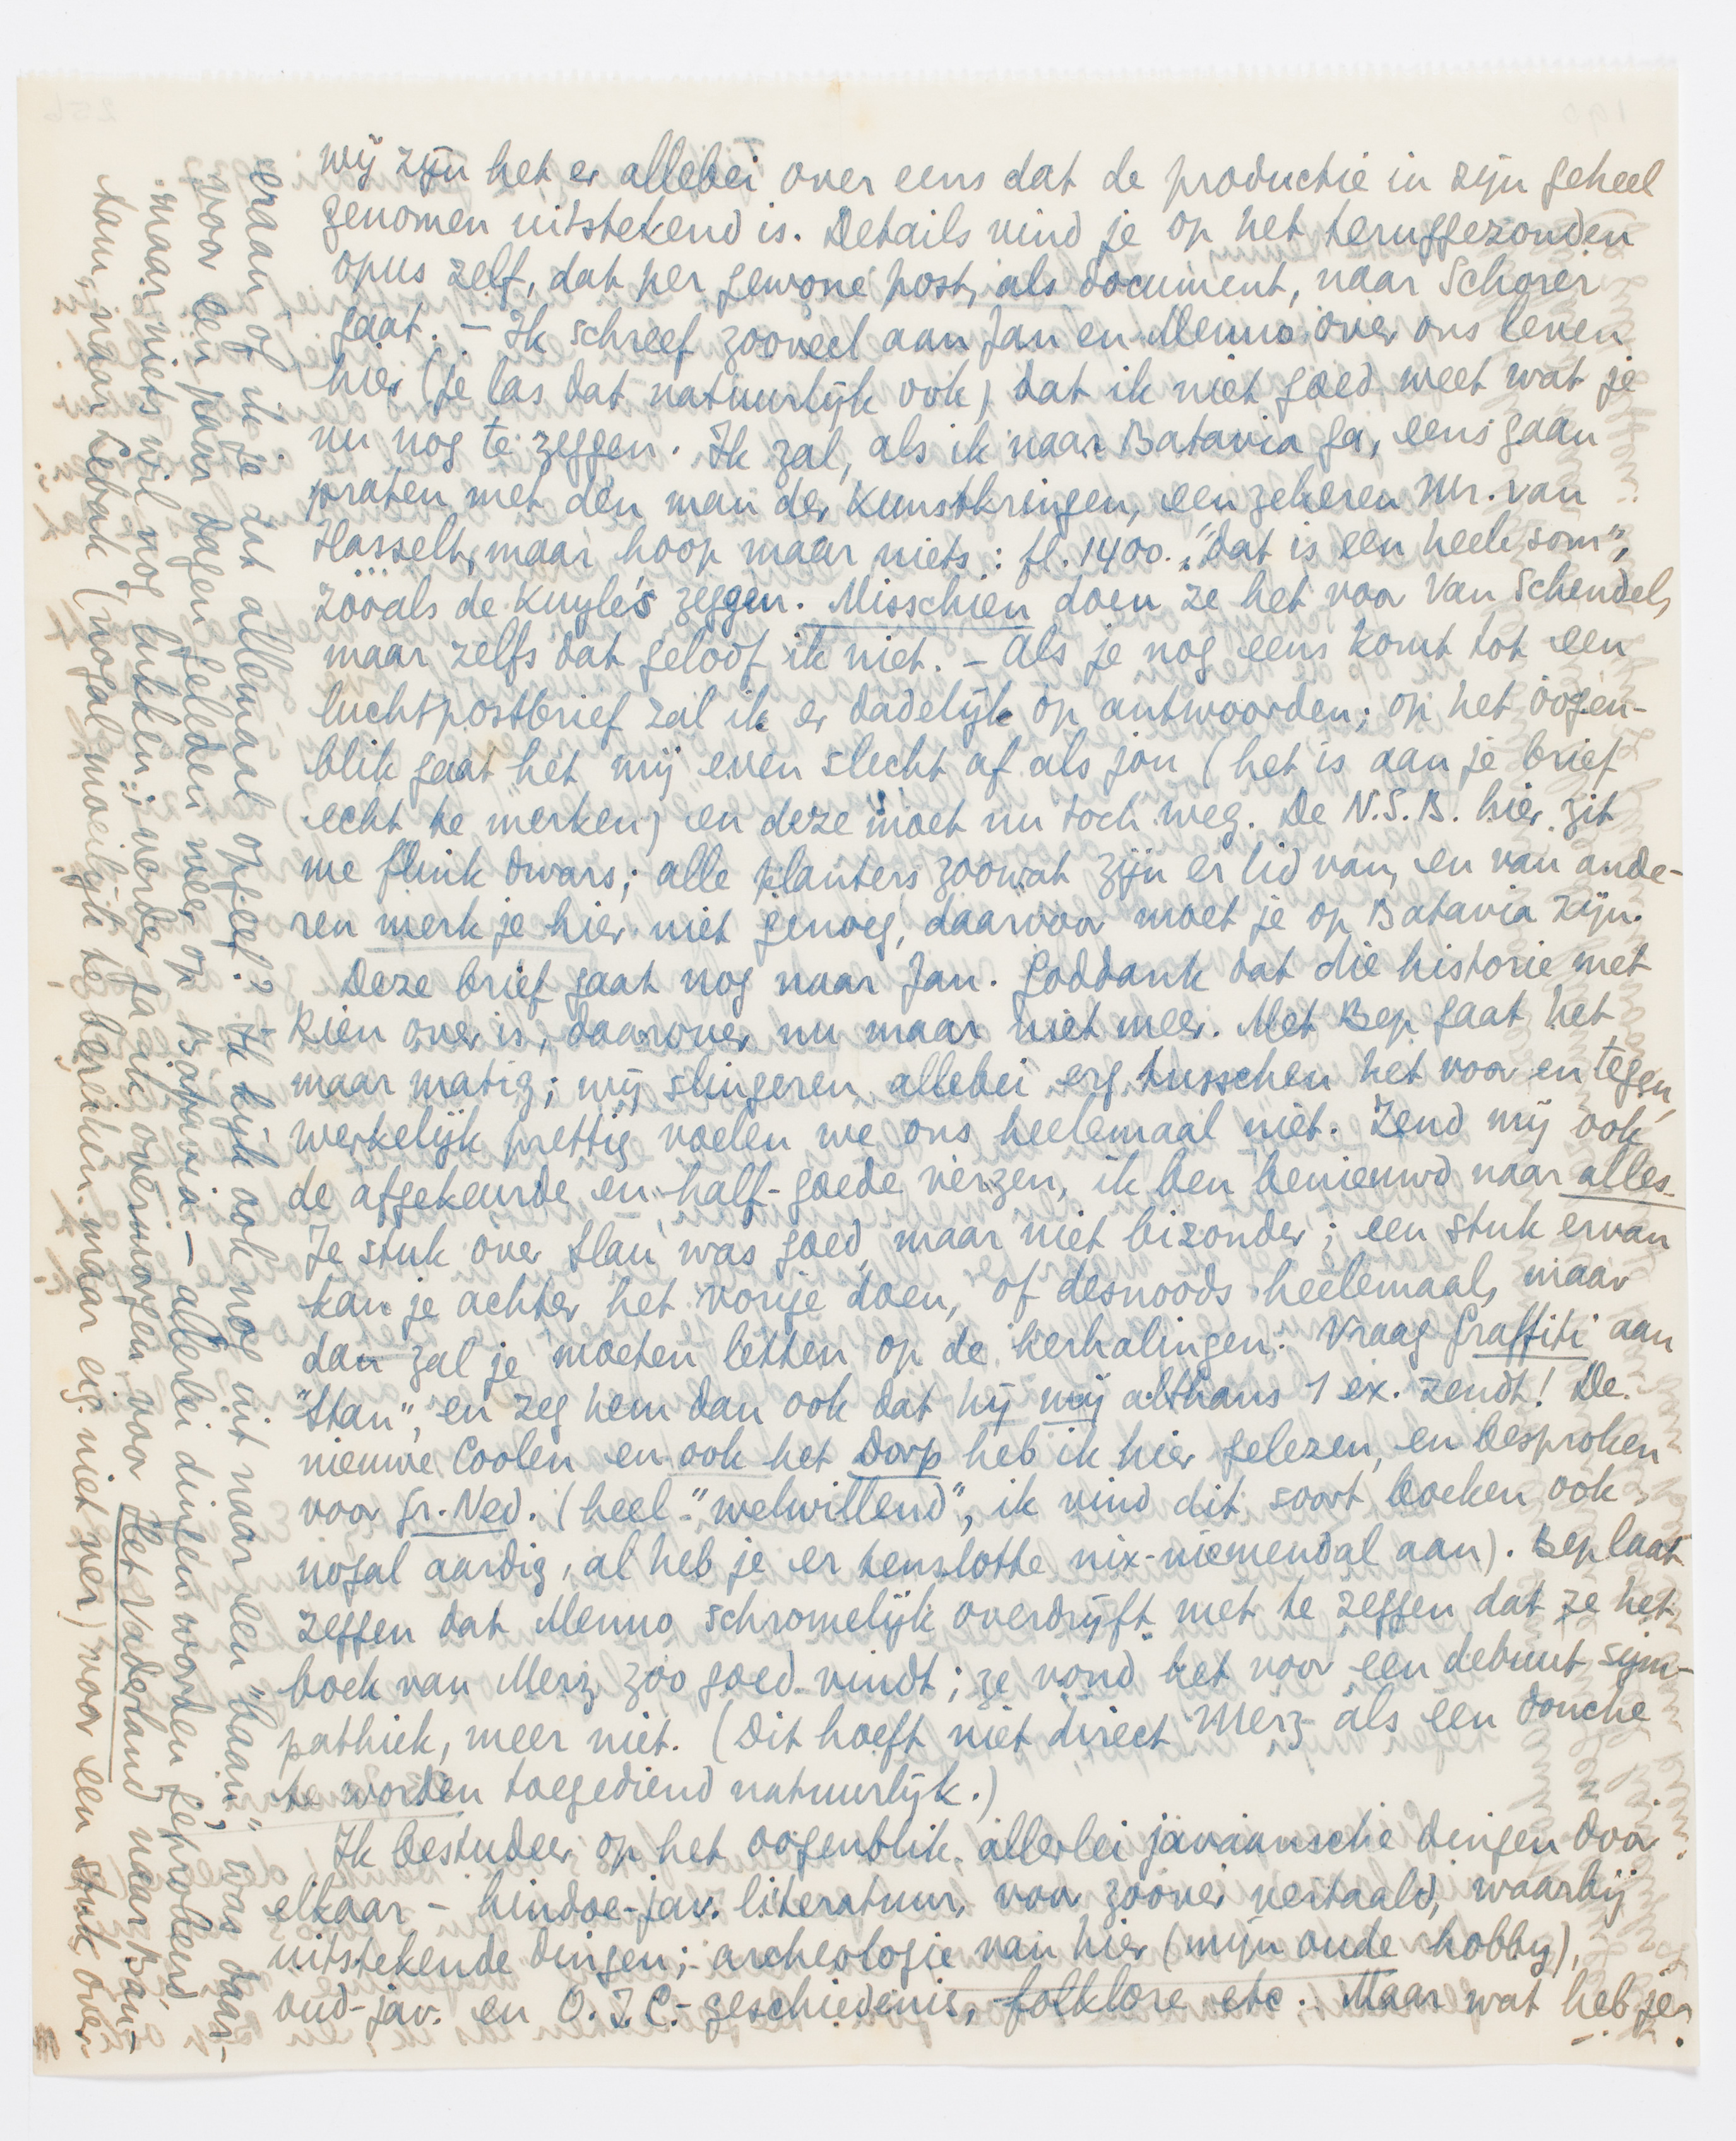 wij zijn het er allebei over eens dat de productie in zijn geheel
genomen uitstekend is. Details vind je op het teruggezonden
opus zelf, dat per gewone post, als document, naar Scharer
gaat. – Ik schreef zooveel aan Jan en Menno over ons leven
hier (je las dat natuurlijk ook) dat ik niet goed weet wat je
nu nog te zeggen. Ik zal, als ik naar Batavia ga, eens gaan
praten met den man der Kunstkringen, een zekeren Mr. van
Hasselt, maar hoop maar niets: fl. 1400. "dat is een heele som",
zooals de Kuyle's zeggen. Misschien doen ze het voor Van Schendel,
maar zelfs dat geloof ik niet. – Als je nog eens komt tot een
luchtpostbrief zal ik er dadelijk op antwoorden; op het oogen-
blik gaat het mij even slecht af als jou (het is aan je brief
echt te merken) en deze moet nu toch weg. De N.S.B. hier zit
me flink dwars; alle planters zoowat zijn er lid van, en van ande-
ren merk je hier niet genoeg, daarvoor moet je op Batavia zijn.
Deze brief gaat nog naar Jan. Goddank dat die historie met
Rien over is, daarover nu maar niet meer. Met Bep gaat het
maar matig; wij slingeren allebei erg tusschen het voor en tegen,
werkelijk prettig voelen we ons heelemaal niet. Zend mij ook
de afgekeurde en half-goede verzen, ik ben benieuwd naar alles.
Je stuk over Slau was goed, maar niet bizonder; een stuk ervan
kan je achter het vorige doen, of desnoods heelemaal, maar
dan zal je moeten letten op de herhalingen. Vraag Graffiti aan
"Stan", en zeg hem dan ook dat hij mij althans 1 ex. zendt! De
nieuwe Coolen en ook het Dorp heb ik hier gelezen, en besproken
voor Gr. Ned. (heel "welwillend", ik vind dit soort boeken ook
nogal aardig, al heb je er tenslotte nix-niemendal aan). Bep laat
zeggen dat Menno schromelijk overdrijft met te zeggen dat ze het
boek van Merz zoo goed vindt; ze vond het voor een debuut sym-
pathiek, meer niet. (Dit hoeft niet direct Merz als een douche
te worden toegediend natuurlijk.)
Ik bestudeer op het oogenblik allerlei javaansche dingen door
elkaar – hindoe-jav. literatuur, voor zoover vertaald, waarbij
uitstekende dingen; archeologie van hier (mijn oude hobby),
oud-jav. en O.I.C.-geschiedenis, folklore etc. Maar wat heb je
eraan of ik je dat allemaal opgeef? Ik kijk ook nog uit naar een "baan", was daar-
voor een paar dagen geleden weer op Batavia – allerlei dingen worden geprobeerd
maar niets wil nog lukken; verder ga ik overmorgen voor Het Vaderland naar Ban-
tam, naar Lebak (nogal moeilijk te bereiken maar eig. niet ver) voor een stuk over